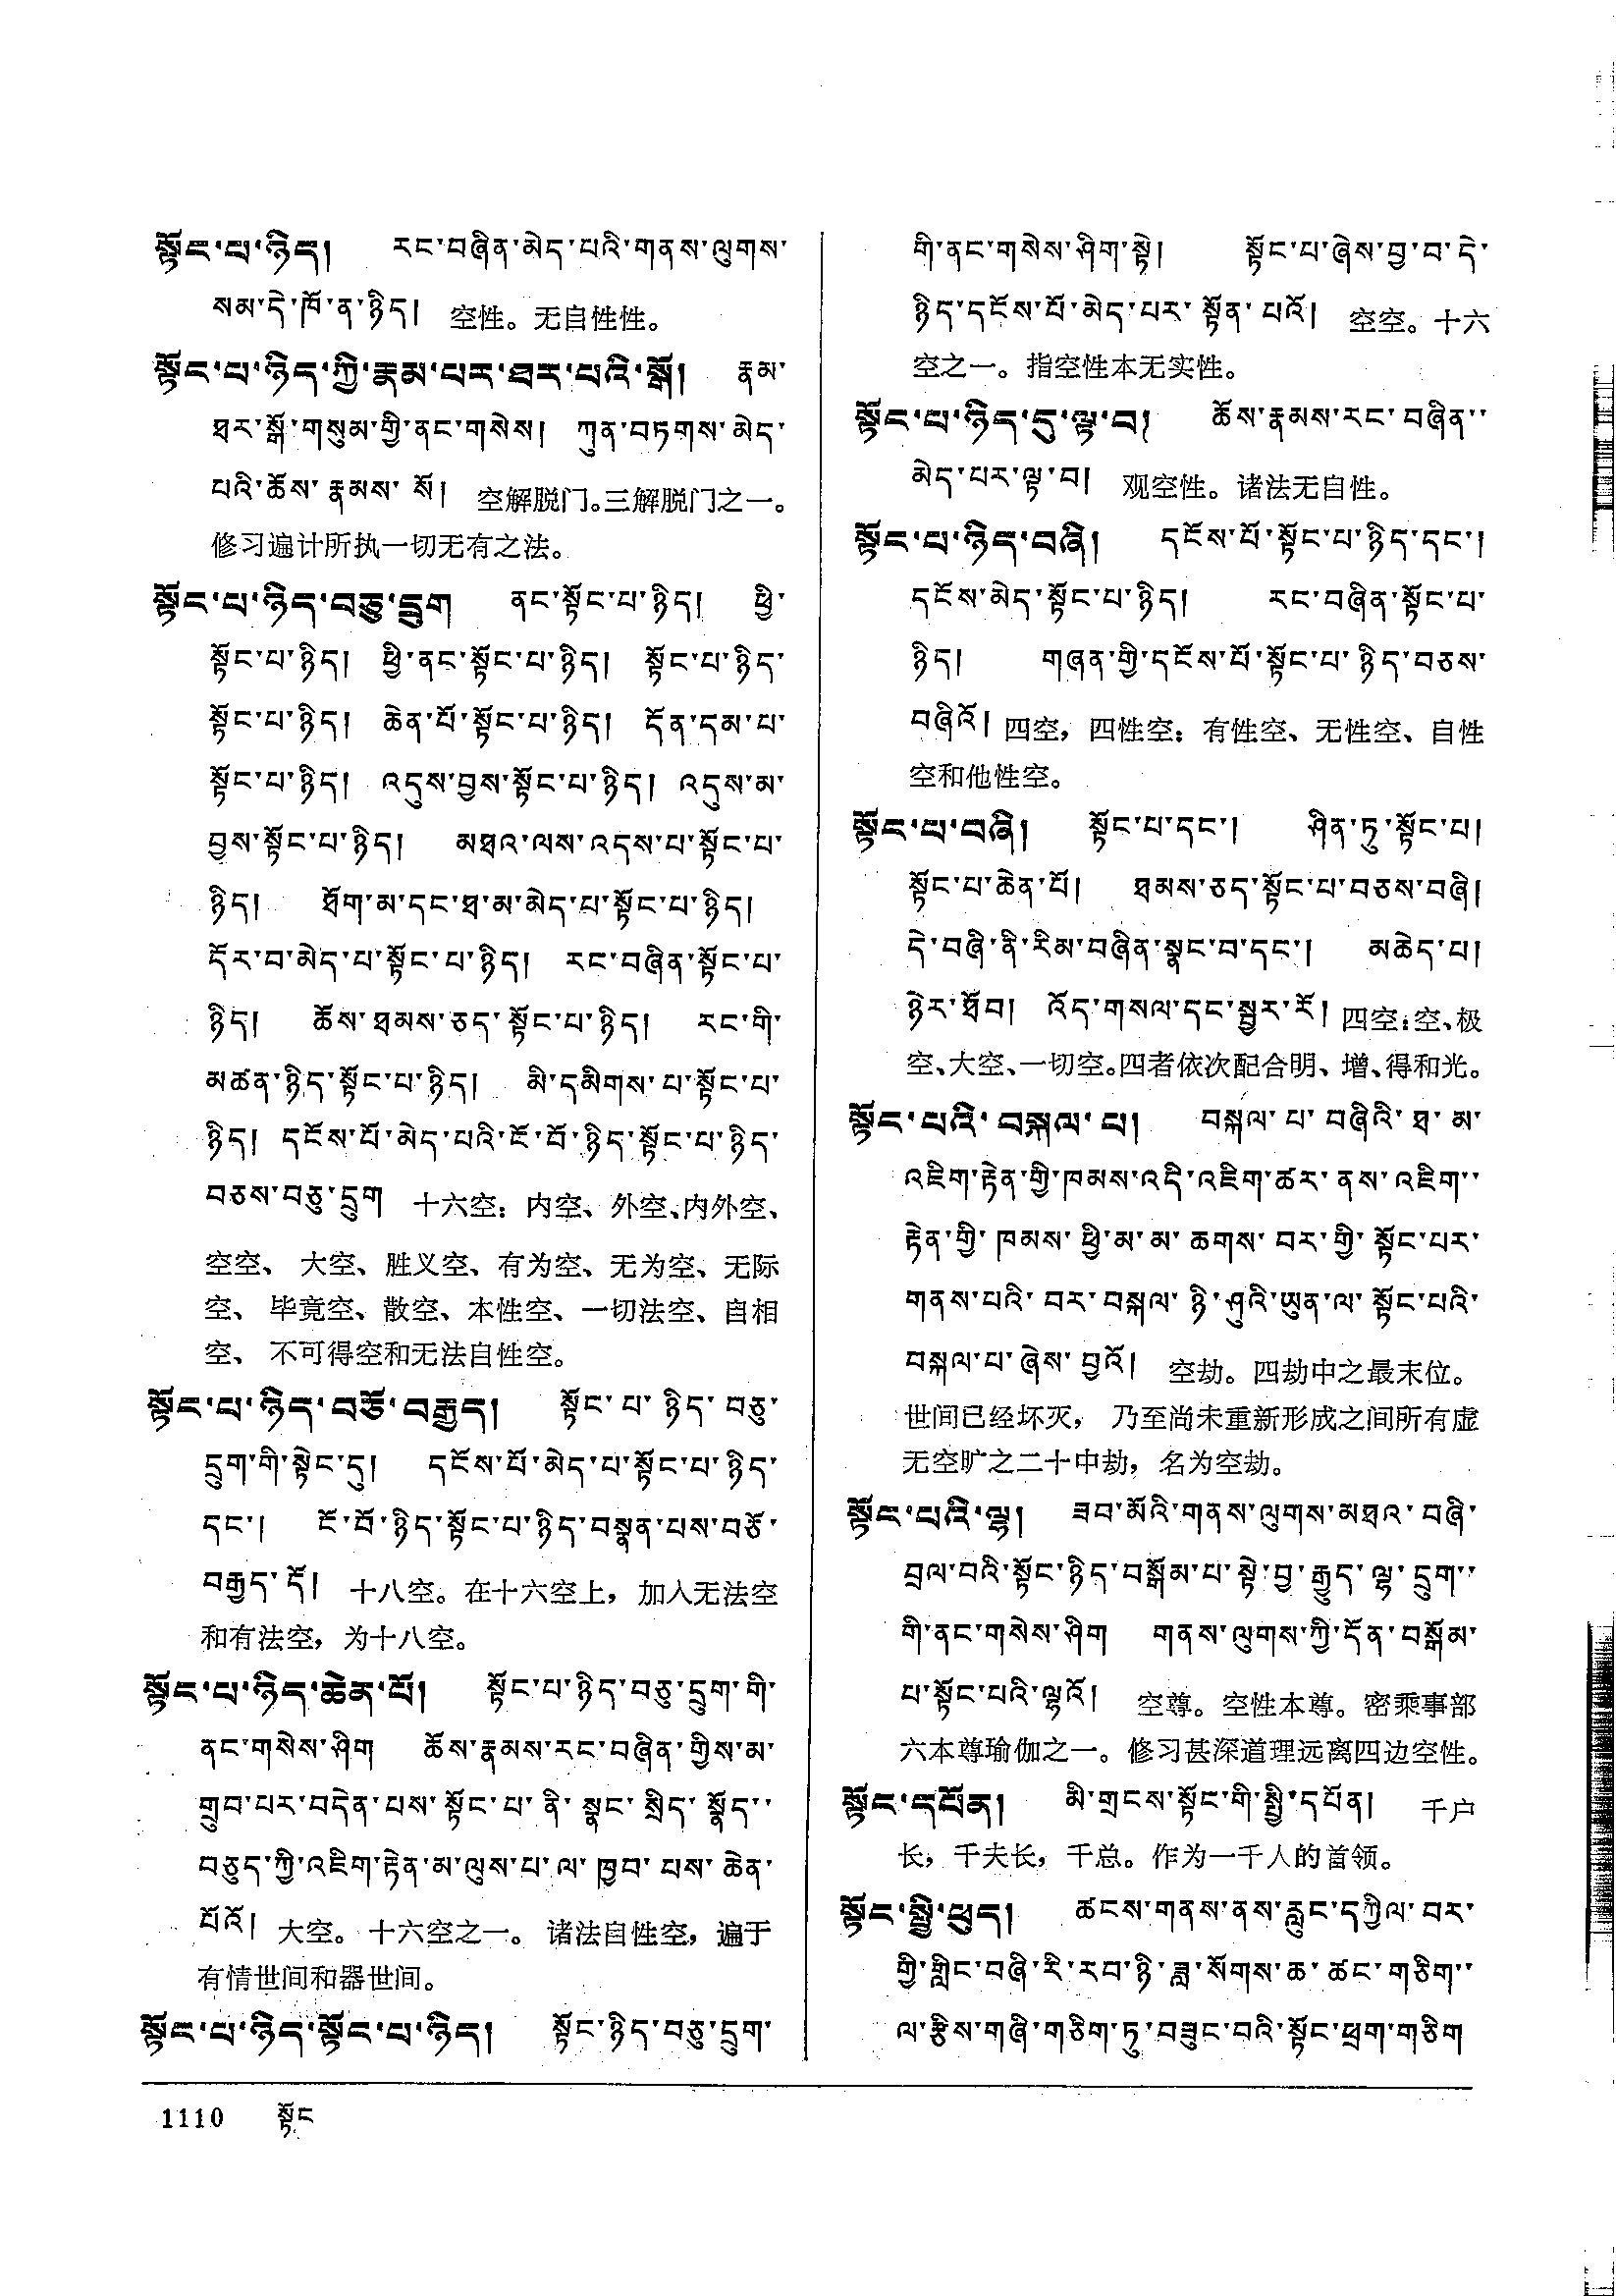 སྟོང་པ་ཉིད། རང་བཞིན་མེད་པའི་གནས་ལུགས་
སམ་དེ་ཁོ་ན་ཉིད། 空性。无自性性。
སྟོང་པ་ཉིད་ཀྱི་རྣམ་པར་ཐར་པའི་སྒོ། རྣམ་
ཐར་སྒོ་གསུམ་གྱི་ནང་གསེས། ཀུན་བཏགས་མེད་
པའི་ཆོས་རྣམས་སོ། 空解脱门。三解脱门之一。
修习遍计所执一切无有之法。
སྟོང་པ་ཉིད་བཅུ་དྲུག ནང་སྟོང་པ་ཉིད། ཕྱི་
སྟོང་པ་ཉིད། ཕྱི་ནང་སྟོང་པ་ཉིད། སྟོང་པ་ཉིད་
སྟོང་པ་ཉིད། ཆེན་པོ་སྟོང་པ་ཉིད། དོན་དམ་པ་
སྟོང་པ་ཉིད། འདུས་བྱས་སྟོང་པ་ཉིད། འདུས་མ་
བྱས་སྟོང་པ་ཉིད། མཐའ་ལས་འདས་པ་སྟོང་པ་
ཉིད། ཐོག་མ་དང་ཐ་མ་མེད་པ་སྟོང་པ་ཉིད།
དོར་བ་མེད་པ་སྟོང་པ་ཉིད། རང་བཞིན་སྟོང་པ་
ཉིད། ཆོས་ཐམས་ཅད་སྟོང་པ་ཉིད། རང་གི་
མཚན་ཉིད་སྟོང་པ་ཉིད། མི་དམིགས་པ་སྟོང་པ་
ཉིད། དངོས་པོ་མེད་པའི་ངོ་བོ་ཉིད་སྟོང་པ་ཉིད་
བཅས་བཅུ་དྲུག 十六空：内空、外空、内外空、
空空、大空、胜义空、有为空、无为空、无际
空、毕竟空、散空、本性空、一切法空、自相
空、不可得空和无法自性空。
སྟོང་པ་ཉིད་བཅོ་བརྒྱད། སྟོང་པ་ཉིད་བཅུ་
དྲུག་གི་སྟེང་དུ། དངོས་པོ་མེད་པ་སྟོང་པ་ཉིད་
དང་། ངོ་བོ་ཉིད་སྟོང་པ་ཉིད་བསྣན་པས་བཅོ་
བརྒྱད་དོ། 十八空。在十六空上，加入无法空
和有法空，为十八空。
སྟོང་པ་ཉིད་ཆེན་པོ། སྟོང་པ་ཉིད་བཅུ་དྲུག་གི་
ནང་གསེས་ཤིག ཆོས་རྣམས་རང་བཞིན་གྱིས་མ་
གྲུབ་པར་བདེན་པས་སྟོང་པ་ནི་སྣང་སྲིད་སྣོད་་
བཅུད་ཀྱི་འཇིག་རྟེན་མ་ལུས་པ་ལ་ཁྱབ་པས་ཆེན་
པོའོ། 大空。十六空之一。诸法自性空，遍于
有情世间和器世间。
སྟོང་པ་ཉིད་སྟོང་པ་ཉིད། སྟོང་ཉིད་བཅུ་དྲུག་
གི་ནང་གསེས་ཤིག་སྟེ། སྟོང་པ་ཞེས་བྱ་བ་དེ་
ཉིད་དངོས་པོ་མེད་པར་སྟོན་པའོ། 空空。十六
空之一。指空性本无实性。
སྟོང་པ་ཉིད་དུ་ལྟ་བ། ཆོས་རྣམས་རང་བཞིན་་
མེད་པར་ལྟ་བ། 观空性。诸法无自性。
སྟོང་པ་ཉིད་བཞི། དངོས་པོ་སྟོང་པ་ཉིད་དང་།
དངོས་མེད་སྟོང་པ་ཉིད། རང་བཞིན་སྟོང་པ་
ཉིད། གཞན་གྱི་དངོས་པོ་སྟོང་པ་ཉིད་བཅས་
བཞིའོ། 四空，四性空：有性空、无性空、自性
空和他性空。
སྟོང་པ་བཞི། སྟོང་པ་དང་། ཤིན་ཏུ་སྟོང་པ།
སྟོང་པ་ཆེན་པོ། ཐམས་ཅད་སྟོང་པ་བཅས་བཞི།
དེ་བཞི་ནི་རིམ་བཞིན་སྣང་བ་དང་། མཆེད་པ།
ཉེར་ཐོབ། འོད་གསལ་དང་སྦྱར་རོ། 四空：空、极
空、大空、一切空。四者依次配合明、增、得和光。
སྟོང་པའི་བསྐལ་པ། བསྐལ་པ་བཞིའི་ཐ་མ་
འཇིག་རྟེན་གྱི་ཁམས་འདི་འཇིག་ཚར་ནས་འཇིག་་
རྟེན་གྱི་ཁམས་ཕྱི་མ་མ་ཆགས་བར་གྱི་སྟོང་པར་
གནས་པའི་བར་བསྐལ་ཉི་ཤུའི་ཡུན་ལ་སྟོང་པའི་
བསྐལ་པ་ཞེས་བྱའོ། 空劫。四劫中之最末位。
世间已经坏灭，乃至尚未重新形成之间所有虚
无空旷之二十中劫，名为空劫。
སྟོང་པའི་ལྷ། ཟབ་མོའི་གནས་ལུགས་མཐའ་བཞི་
བྲལ་བའི་སྟོང་ཉིད་བསྒོམ་པ་སྟེ་བྱ་རྒྱུད་ལྷ་དྲུག་་
གི་ནང་གསེས་ཤིག གནས་ལུགས་ཀྱི་དོན་བསྒོམ་
པ་སྟོང་པའི་ལྷའོ། 空尊。空性本尊。密乘事部
六本尊瑜伽之一。修习甚深道理远离四边空性。
སྟོང་དཔོན། མི་གྲངས་སྟོང་གི་སྤྱི་དཔོན། 千户
长，千夫长，千总。作为一千人的首领。
སྟོང་སྤྱི་ཕུད། ཚངས་གནས་ནས་རླུང་དཀྱིལ་བར་
གྱི་གླིང་བཞི་རི་རབ་ཉི་ཟླ་སོགས་ཆ་ཚང་གཅིག་་
ལ་རྩིས་གཞི་གཅིག་ཏུ་བཟུང་བའི་སྟོང་ཕྲག་གཅིག
1110 སྟོང